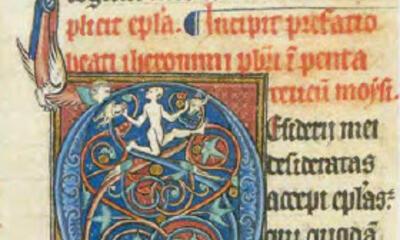 plicit ep̄la. ¶ Incipit prefatio
beati iheronimi pb̄ri ī penta
teucū moysi.
Esiderij mei
desideratas
accepi ep̄las:
qui quodā